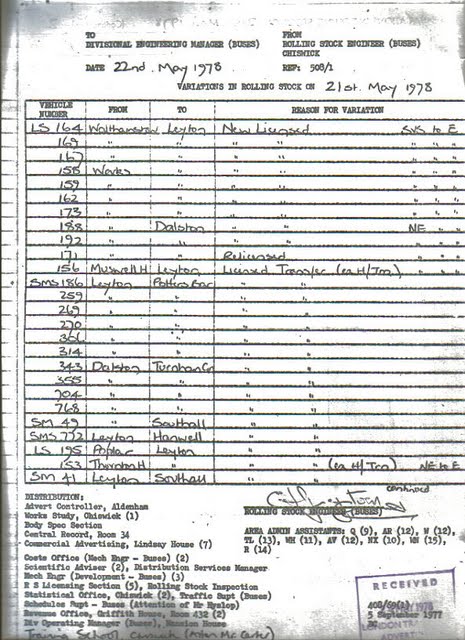 TO FROM
DIVISIONAL ENGINEERING MANAGER (BUSES) ROLLING STOCK ENGINEER (BUSES)
CHISWICK
DATE 22nd May 1978 REF: 508/1
VARIATIONS IN ROLLING STOCK ON 21st. May 1978
VEHICLE NUMBER FROM TO REASON FOR VARIATION
LS 164 Walthamstow Leyton New Licensed SVS to E
169 " " " " " " "
167 " " " " " " "
158 Works " " " " " "
159 " " " " " " "
162 " " " " " " "
173 " " " " " " "
188 " Dalston " " NE " "
192 " " " " " " "
171 " " Relicensed " " "
156 Muswell H Leyton Licensed Transfer (ex H/Trn) " " "
SMS 186 Leyton Potters Bar " "
259 " " " "
269 " " " "
270 " " " "
" " " "
314 " " " "
343 Dalston Turnham Gn " "
355 " " " "
704 " " " "
768 " " " "
SM 49 " Southall " "
SMS 772 Leyton Hanwell " "
LS 195 Poplar Leyton " "
153 Thornton H " " (ex H/Trn) NE to E
SM 41 Leyton Southall " "
continued
DISTRIBUTION: ROLLING STOCK ENGINEER (BUSES)
Advert Controller, Aldenham
Works Study, Chiswick (1)
Body Spec Section
Central Record, Room 34
Commercial Advertising, Lindsay House (7)
AREA ADMIN ASSISTANTS: Q (9), AR (12), W (12),
TL (13), WH (11), AV (12), NX (10), WN (15),
R (14)
Costs Office (Mech Engr - Buses) (2)
Scientific Adviser (2), Distribution Services Manager
Mech Engr (Development - Buses) (3)
R S Licensing Section (5), Rolling Stock Inspection
Statistical Office, Chiswick (2), Traffic Supt (Buses)
Schedules Supt - Buses (Attention of Mr Hyslop)
Revenue Office, Griffith House, Room 432 (2)
Div Operating Manager (Buses), Mansion House
Training School, Chiswick
RECEIVED
1978
5 September 1977